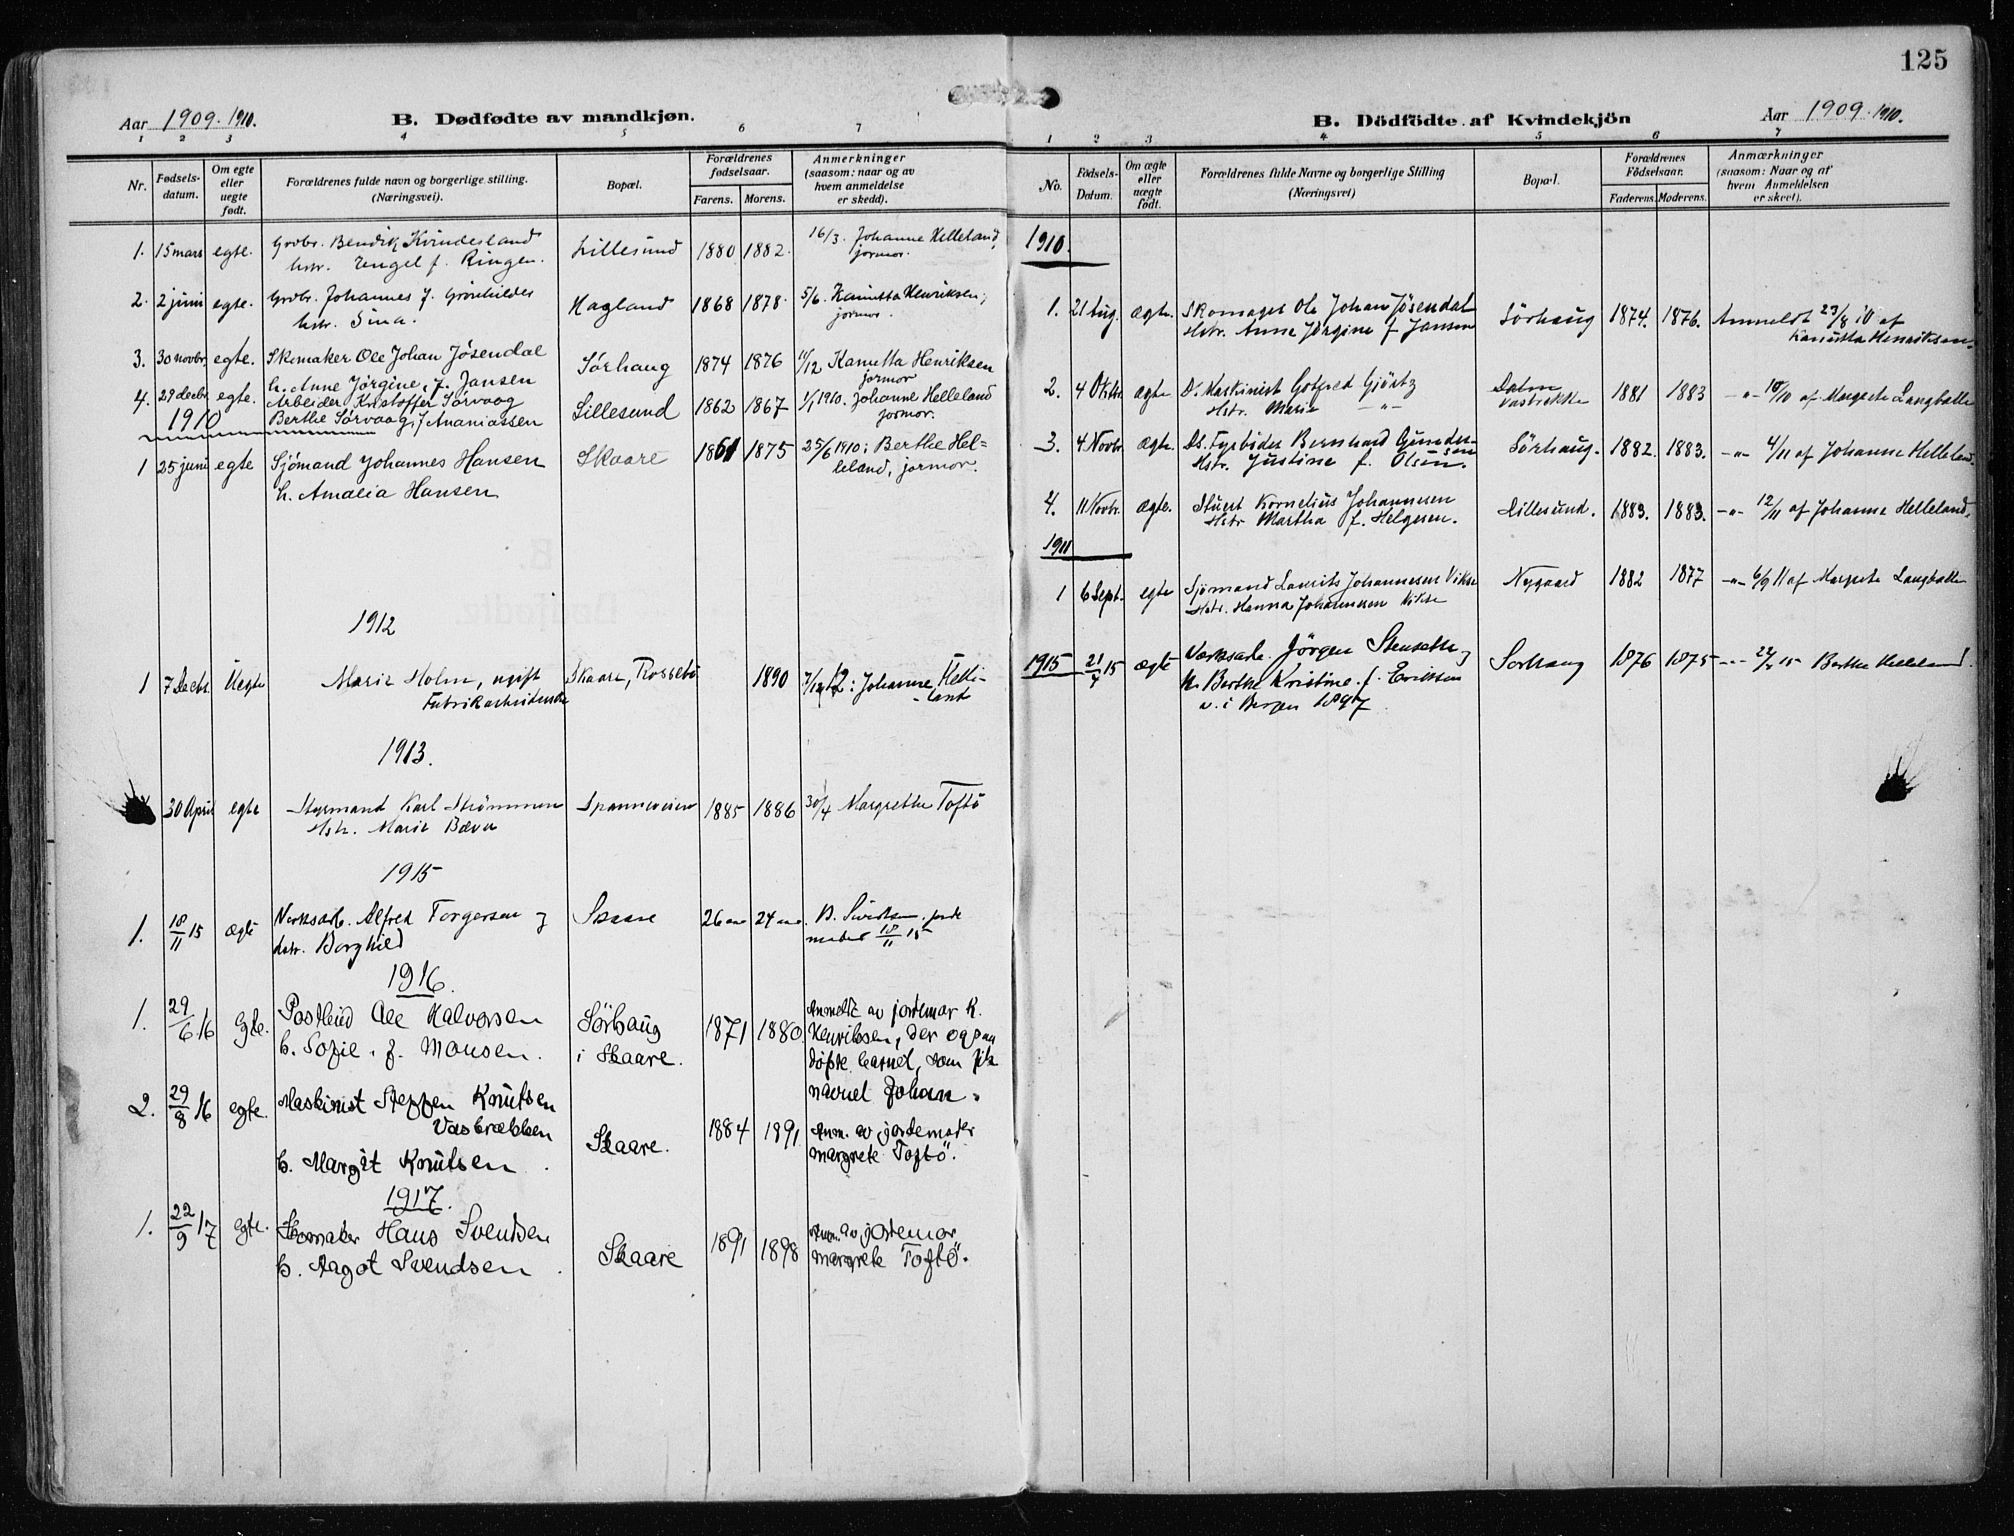 125
Aar 1909. 1910.
B. Dødfødte av mandkjøn.
1 2 3 4 5 6 7
Nr.
Fødsels-
datum.
Om egte
eller
uegte
født.
Forældrenes fulde navn og borgerlige stilling.
(Næringsvei).
Bopæl.
Forældrenes
fødselsaar.
Farens. Morens.
Anmerkninger
(saasom: naar og av
hvem anmeldelse
er skedd).
1. 15 mars egte. Grdbr. Bendik Kvindesland Lillesund 1880 1882. 16/3. Johanne Helleland,
hstr. Engel f. Ringen. jormor.
2. 2 juni egte. Grdbr. Johannes J. Grönhildes Hagland 1868 1878. 5/6. Kanutta Henriksen,
hstr. Sina. jormor.
3. 30 novbr. egte. Skomaker Ole Johan Jøsendal Sørhaug 1874 1876 1/12 Kanutta Henriksen
h. Anne Jørgine, f. Jansen jormor
4. 29 decbr. egte. Arbeider Kristoffer Sørvaag Lillesund 1862 1867 1/1 1910. Johanne Helleland
1910 Berthe Sørvaag, f Ananiassen jormor.
1 25 juni egte Sjömand Johannes Hansen Skaare 1861 1875 25/6 1910: Berthe Hel=
h. Amalia Hansen leland, jormor.
1912
1 7 Decbr. Uegte Marie Holm, ugift Skaare, Rossebö 1890 7/12 12: Johanne Helle-
Fabrikarbeiderske land
1913.
30 April egte Styrmand Karl Strömmen Spanneveien 1885 1886 30/4 Margrethe Toftö
Hstr. Marie Bævre
1915
1. 18/11 15 ægte Verksarb. Alfred Torgersen og Skaare 26 24 B. jorde
hstr. Borghild moder 18/11 15
1916.
1. 29/6 16 Egte. Postbud Ole Halvorsen Sörhaug 1871 1880. Anmeldt av jordemor K.
h. Sofie. f. Monsen. i Skaare. Henriksen, der ogsaa
döpte barnet, som fik
navnet Johan.
2. 29/8 16 egte. Maskinist Steffen Knutsen
Vasbrækken Skaare. 1884 1891. Anm. av jordemoder
h. Margit Knutsen. margrete Toftö.
1917.
1. 22/9 17 egte. Skomaker Hans Svendsen Skaare 1891 1898 Anm. av jordemor
h. Aagot Svendsen. margrete Toftö.
B. Dödfödte af Kvindekjön
Aar 1909. 1910.
1 2 3 4 5 6 7
No.
Födsels-
Datum.
Om ægte
eller
uægte
födt.
Forældrenes fulde Navne og borgerlige Stilling
(Næringsvei)
Bopæl.
Forældrenes
Födselsaar.
Faderens. Moderens.
Anmærkninger
(saasom: Naar og af
hvem Anmeldelsen
er skeet).
1910.
1. 21 Aug. ægte. Skomager Ole Johan Jösendal Sörhaug 1874. 1876. Anmeldt 23/8 10 af
Hstr. Anne Jörgine f Jansen Kanutta Henriksen.
2. 4 Oktbr ægte D. Maskinist Gotfred Gjörtz 1881 1883 -"- 10/10 af Margrete Langballe
Hstr. Marie -"-
3. 4 Novbr. ægte. Ds. Fyrböder Bernhard Gunder-
sen Sörhaug. 1882. 1883. -"- 4/11 af Johanne Helleland.
Hstr. Justine f. Olsen.
4. 11 Novbr. ægte. Stuert Kornelius Johannesen Lillesund. 1883. 1883. -"- 12/11 af Johanne Helleland.
Hstr Martha f. Helgesen.
1911
1 6 Sept. egte Sjömand Laurits Johannesen Vikse Nygaard 1882 1877 -"- 6/9 11 af Margrete Langballe
Hstr. Hanna Johannesen Vikse
1915 21/7 15 ægte Verksarb. Jörgen Stenseth og Sörhaug 1876 1875 -"- 22/7 15 Berthe Helleland.
h. Berthe Kristine. f. Eriksen
v. i Bergen 1897